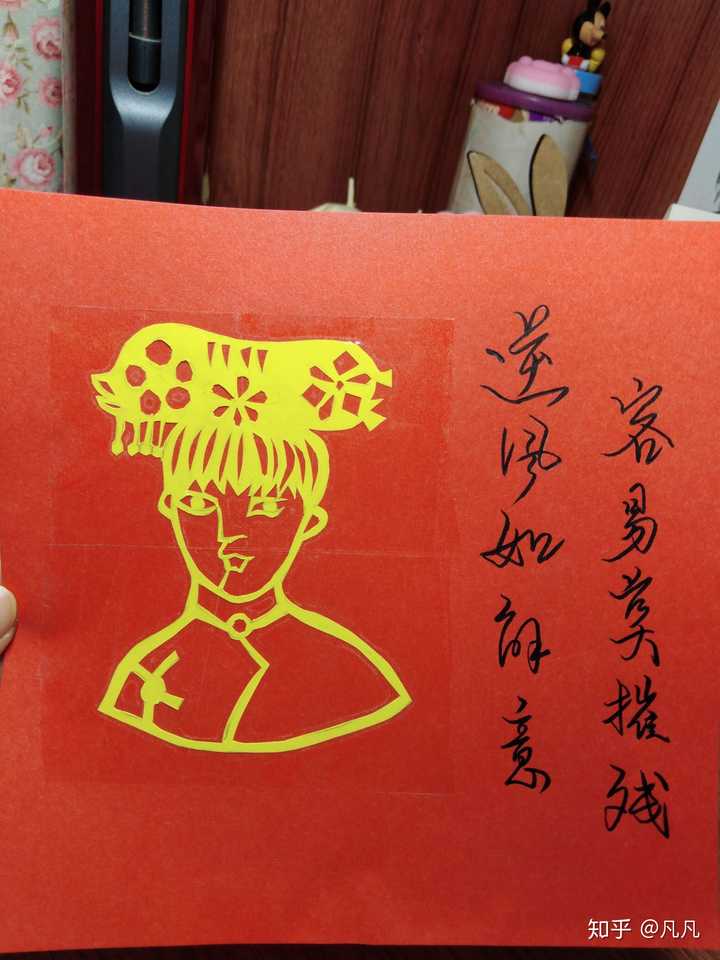 逆风如解意
容易莫摧残
知乎 @凡凡